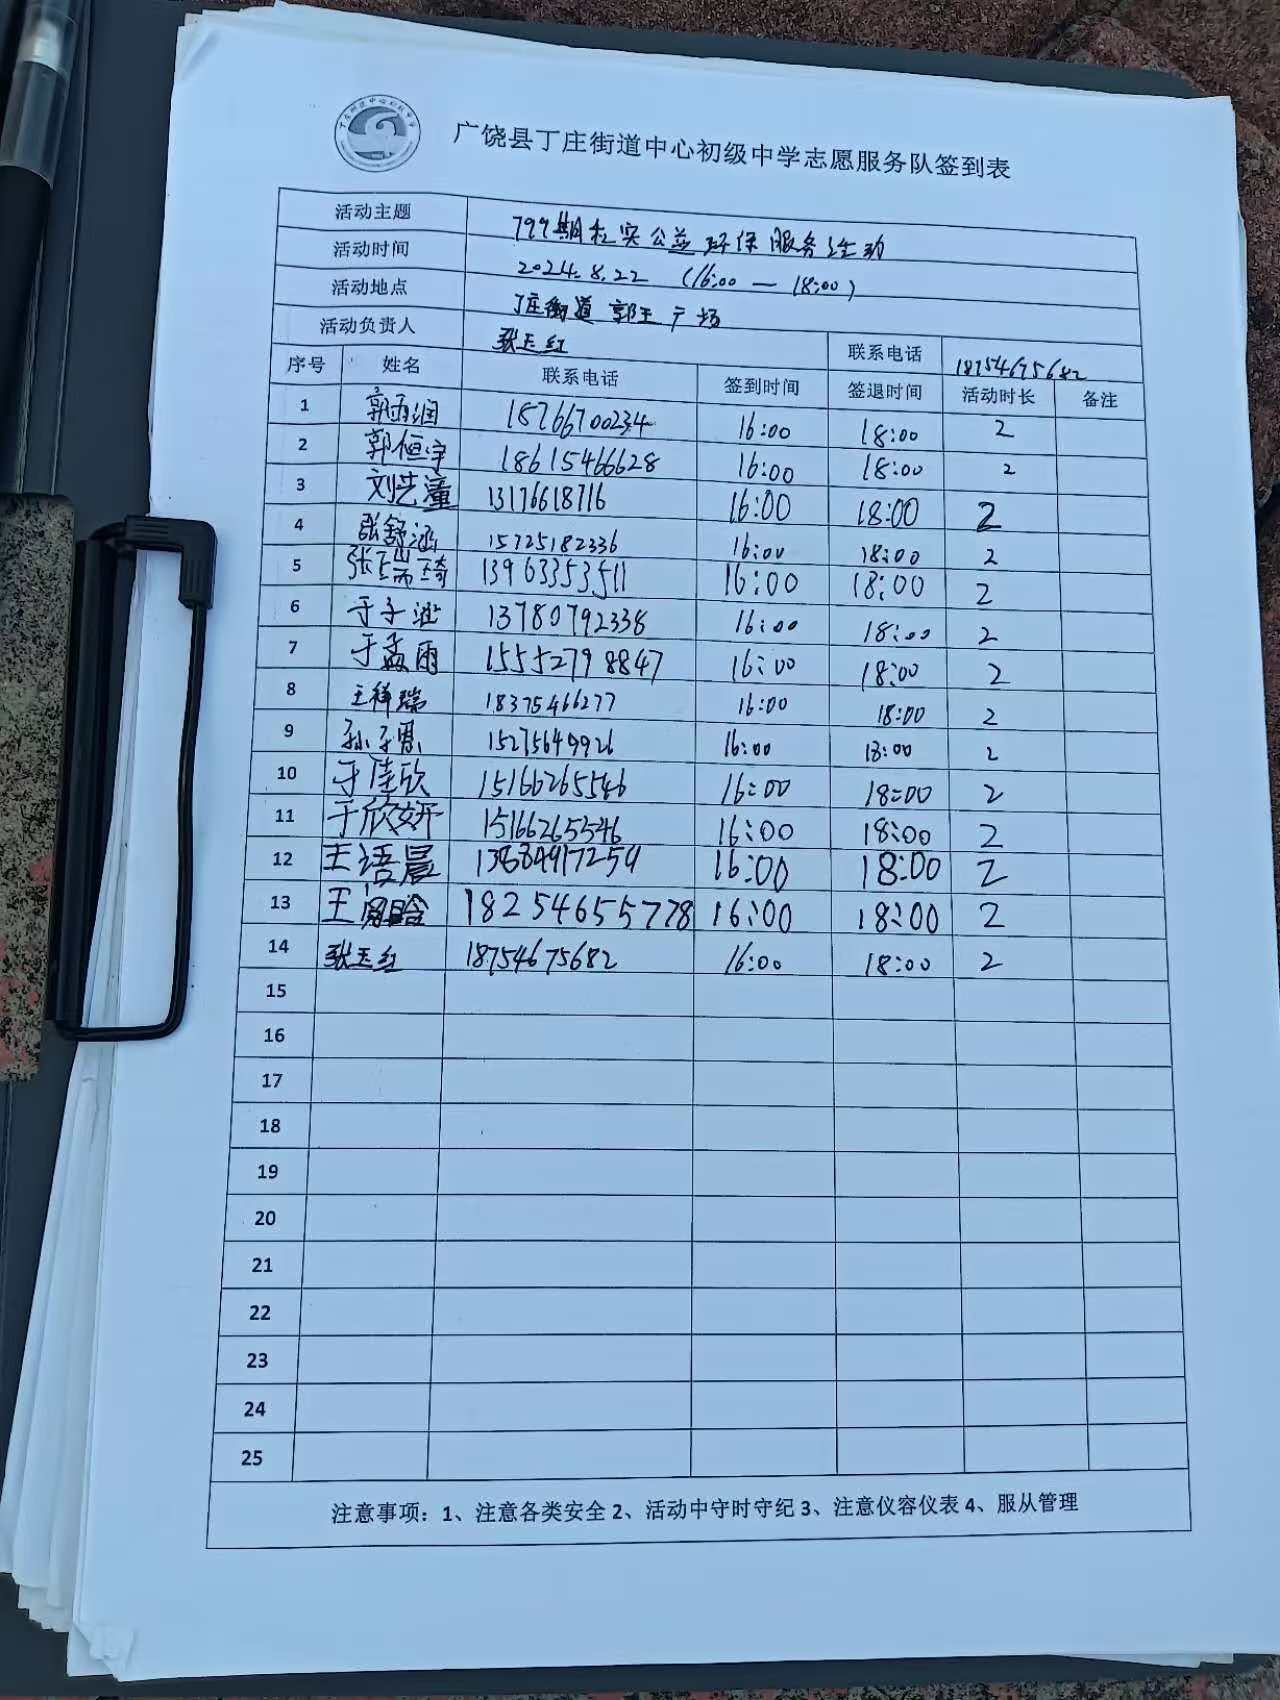 广饶县丁庄街道中心初级中学志愿服务队签到表
活动主题 799期红实公益环保服务活动
活动时间 2024.8.22 (16:00 — 18:00)
活动地点 丁庄街道 郭王广场
活动负责人 张玉红 联系电话 18754675682
序号 姓名 联系电话 签到时间 签退时间 活动时长 备注
1 郭雨润 18766700234 16:00 18:00 2
2 郭恒宇 18615466628 16:00 18:00 2
3 刘艺潼 13176618716 16:00 18:00 2
4 张舒涵 15725182336 16:00 18:00 2
5 张瑞琦 13963353511 16:00 18:00 2
6 于子 13780792338 16:00 18:00 2
7 于孟雨 15552798847 16:00 18:00 2
8 王祥瑞 18375466277 16:00 18:00 2
9 孙子 15275649926 16:00 18:00 2
10 于佳欣 15166265546 16:00 18:00 2
11 于欣妍 15166265546 16:00 18:00 2
12 王语晨 16:00 18:00 2
13 王 18254655778 16:00 18:00 2
14 张玉红 18754675682 16:00 18:00 2
15
16
17
18
19
20
21
22
23
24
25
注意事项：1、注意各类安全 2、活动中守时守纪 3、注意仪容仪表 4、服从管理